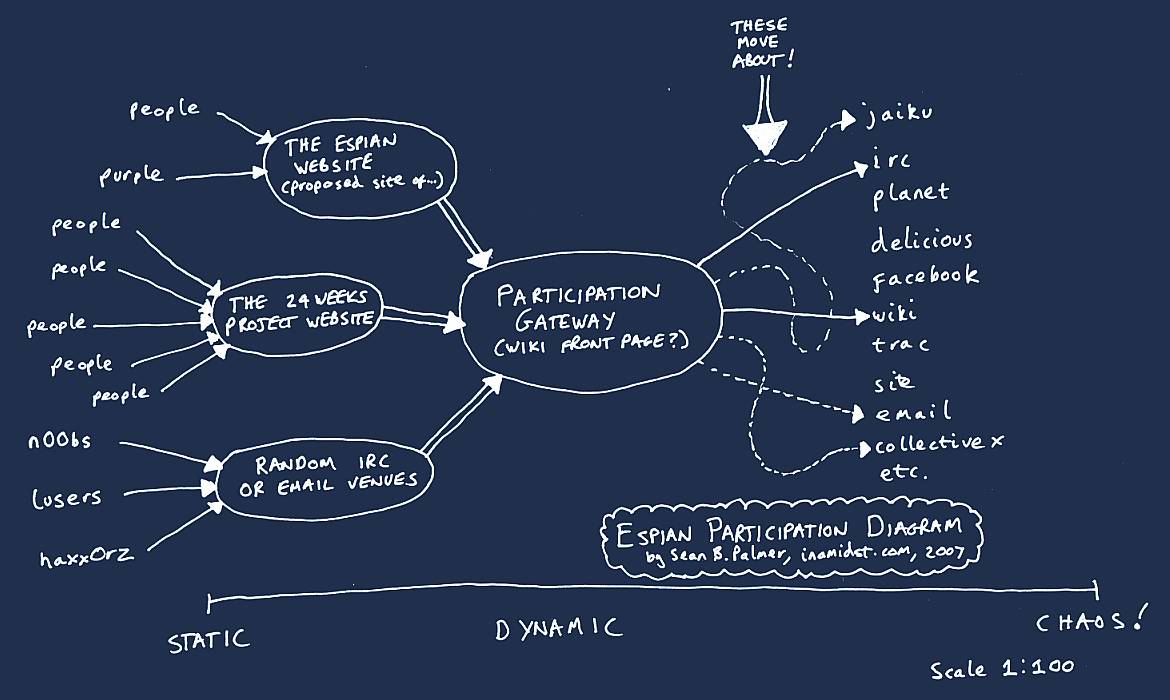 THESE
MOVE
ABOUT!
people
purple
THE ESPIAN
WEBSITE
(proposed site of...)
people
people
people
people
people
THE 24 WEEKS
PROJECT WEBSITE
n00bs
lusers
haxx0rz
RANDOM IRC
OR EMAIL VENUES
PARTICIPATION
GATEWAY
(WIKI FRONT PAGE?)
jaiku
irc
planet
delicious
Facebook
wiki
trac
site
email
collective x
etc.
ESPIAN PARTICIPATION DIAGRAM
by Sean B. Palmer, inamidst.com, 2007
STATIC
DYNAMIC
CHAOS!
Scale 1:100